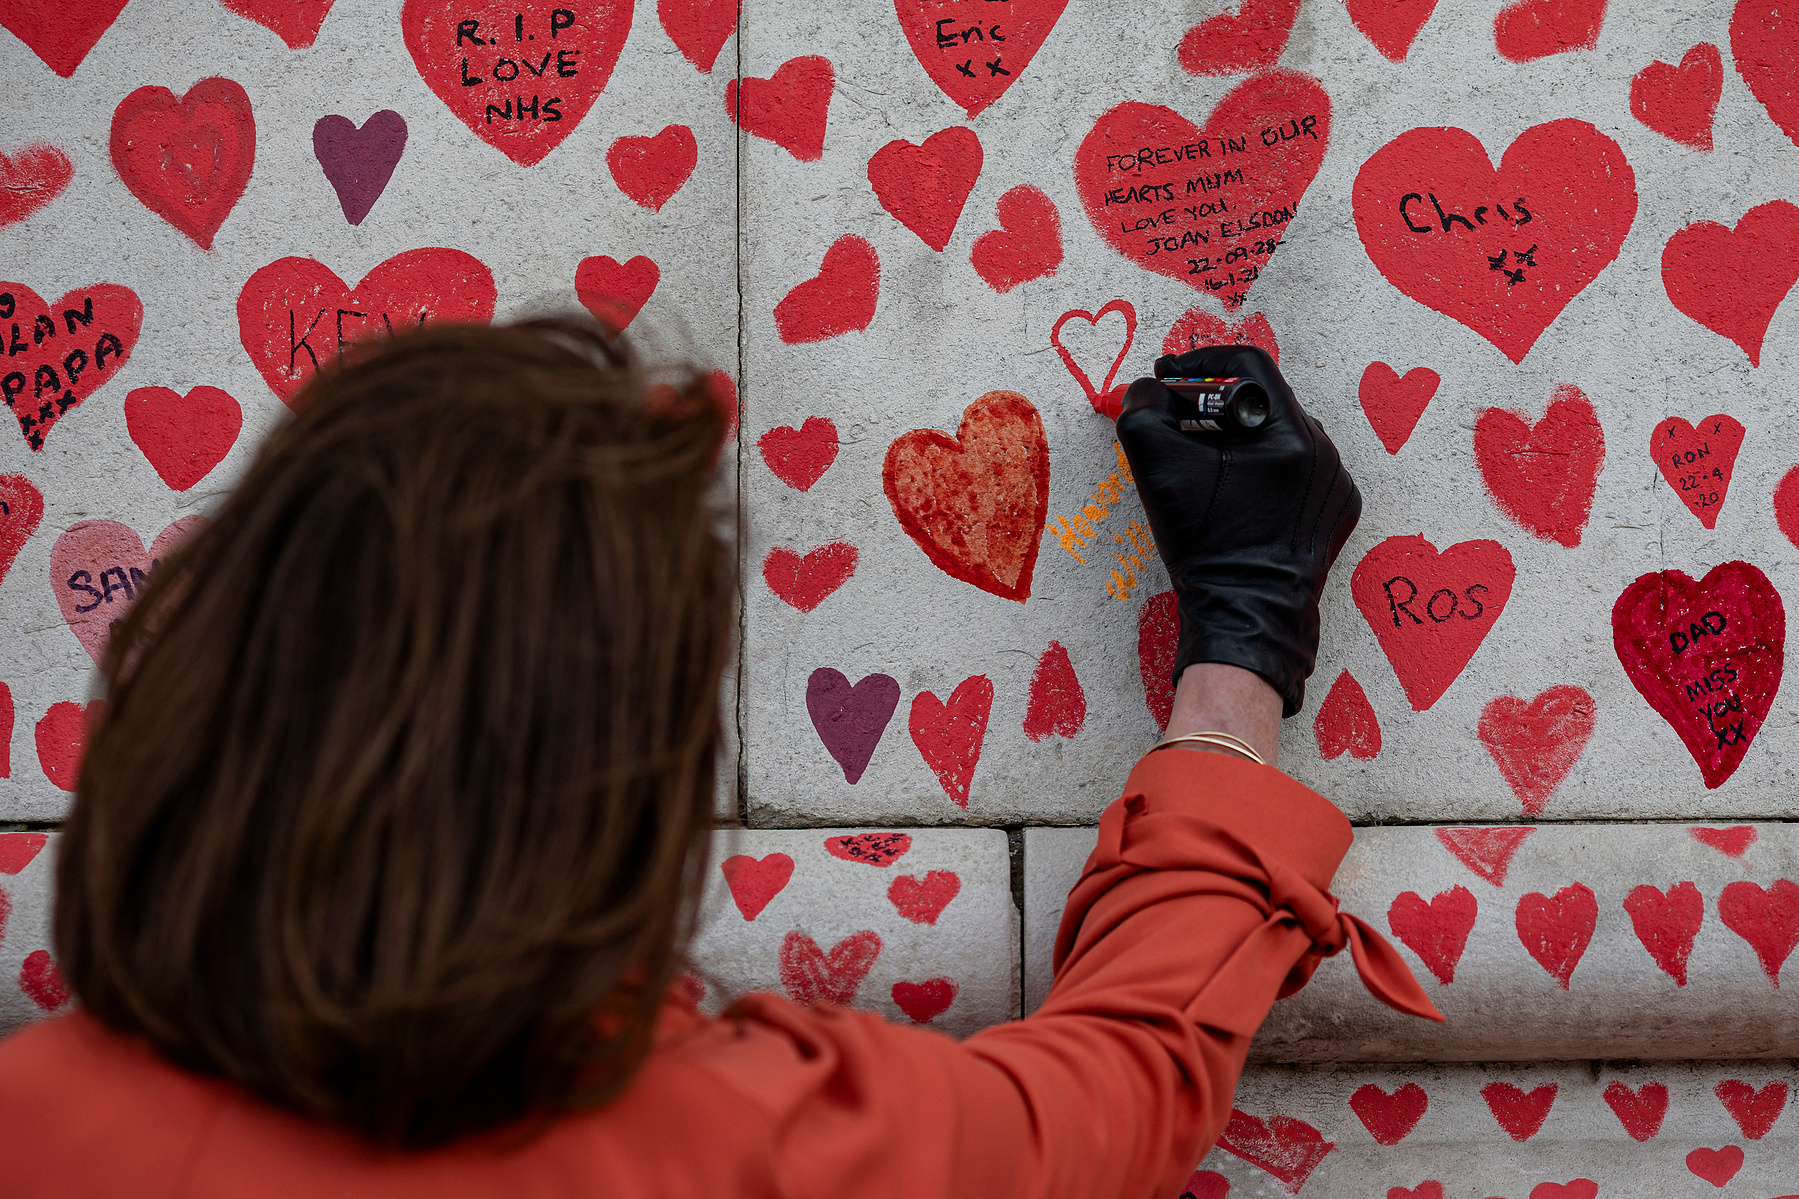 R.I.P
LOVE
NHS
Eric
xx
FOREVER IN OUR
HEARTS MUM.
LOVE YOU.
JOAN ELSDON
22-09-28-
16-1-21
xx
Chris
xx
x
LAN
PAPA
xxx
x
KEV
x x
RON
22-4
-20
SAN
Ros
DAD
MISS
YOU
XX
PC-8K